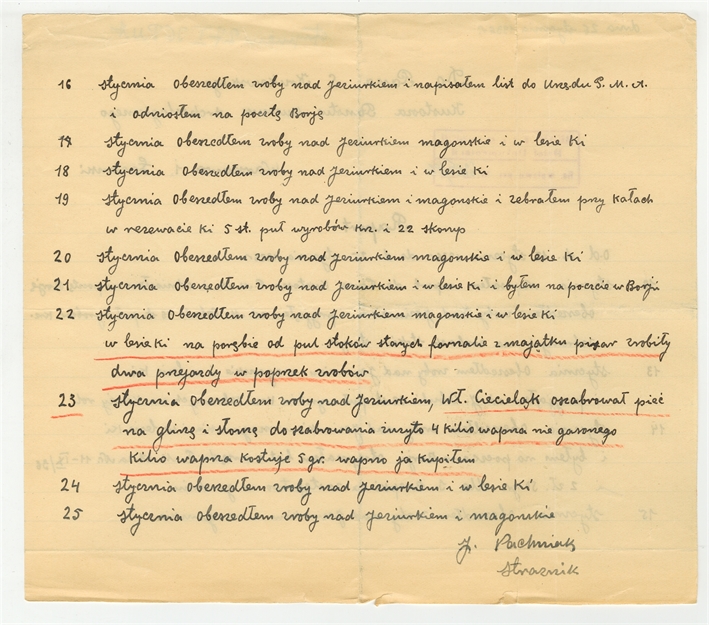 16 stycznia obeszedłem zroby nad Jeziurkiem i napisałem list do Urzędu P. M. A.
i odniosłem na pocztę Borję
17 stycznia Obeszedłem zroby nad Jeziurkiem magonskie i w lesie Ki
18 stycznia Obeszedłem zroby nad Jeziurkiem i w lesie Ki
19 stycznia Obeszedłem zroby nad Jeziurkiem i magonskie i zebrałem przy Kałach
w rezewacie Ki 5 st. puł wyrobów krz. i 22 skorup
20 stycznia Obeszedłem zroby nad Jeziurkiem magonskie i w lesie Ki
21 stycznia Obeszedłem zroby nad Jeziurkiem i w lesie Ki i byłem na poczcie w Borji
22 stycznia Obeszedłem zroby nad Jeziurkiem magonskie i w lesie Ki
w lesie Ki na porębie od pul stoków starych fornalie z majątku zrobiły
dwa przejazdy w poprzek zrobów
23 stycznia Obeszedłem zroby nad Jeziurkiem, Wł. Cieciel_ąk oszabrował pieć
na glinę i słomę do szabrowania zużyto 4 kilio wapna nie gasonego
Kilio wapna kostuje 5 gr. wapno ja kupiłem
24 stycznia Obeszedłem zroby nad Jeziurkiem i w lesie Ki
25 stycznia Obeszedłem zroby nad Jeziurkiem i magonskie
J. Pachniak
straznik